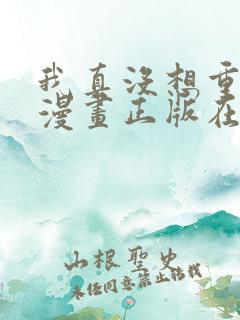 我真没想重
漫畫正版在
山根聖史
未经同意禁止转载